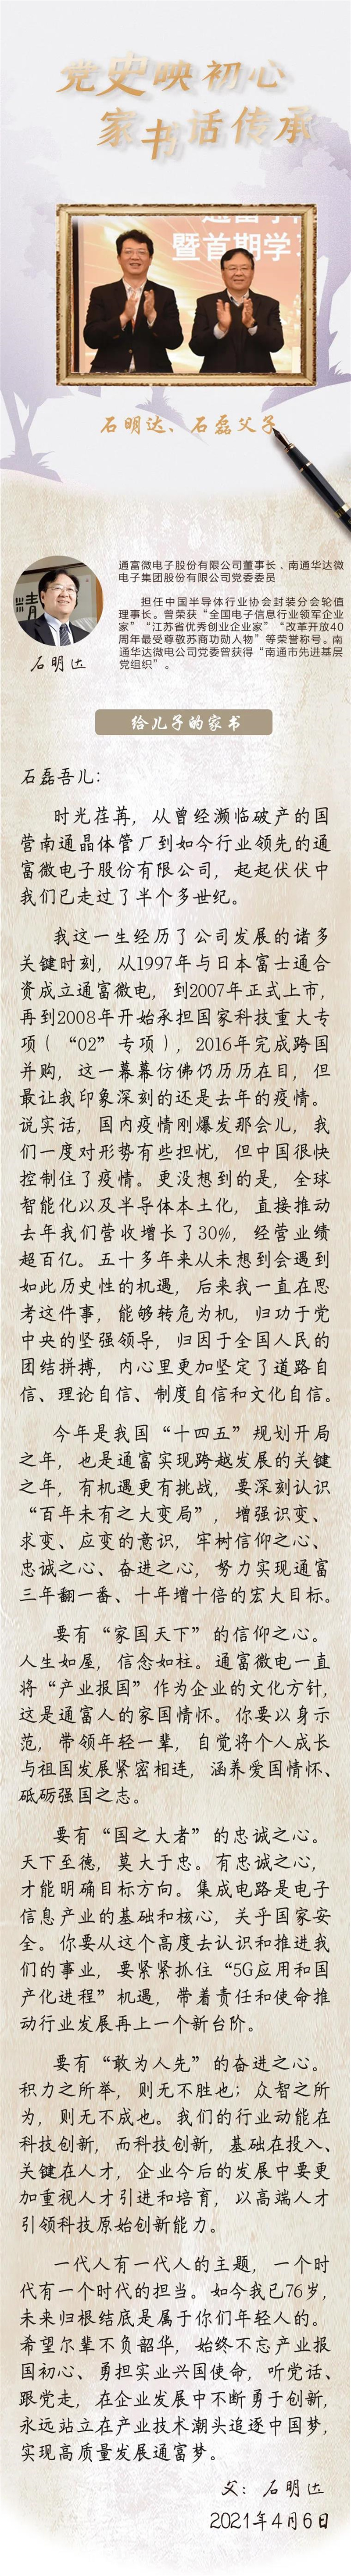 党史映初心
家书话传承
通富
暨首期学
石明达、石磊父子
通富微电子股份有限公司董事长、南通华达微
电子集团股份有限公司党委委员
担任中国半导体行业协会封装分会轮值
理事长。曾荣获“全国电子信息行业领军企业
家”“江苏省优秀创业企业家”“改革开放40
周年最受尊敬苏商功勋人物”等荣誉称号。南
通华达微电公司党委曾获得“南通市先进基层
党组织”。
石明达
给儿子的家书
石磊吾儿：
时光荏苒，从曾经濒临破产的国
营南通晶体管厂到如今行业领先的通
富微电子股份有限公司，起起伏伏中
我们已走过了半个多世纪。
我这一生经历了公司发展的诸多
关键时刻，从1997年与日本富士通合
资成立通富微电，到2007年正式上市，
再到2008年开始承担国家科技重大专
项（“02”专项），2016年完成跨国
并购，这一幕幕仿佛仍历历在目，但
最让我印象深刻的还是去年的疫情。
说实话，国内疫情刚爆发那会儿，我
们一度对形势有些担忧，但中国很快
控制住了疫情。更没想到的是，全球
智能化以及半导体本土化，直接推动
去年我们营收增长了30%，经营业绩
超百亿。五十多年来从未想到会遇到
如此历史性的机遇，后来我一直在思
考这件事，能够转危为机，归功于党
中央的坚强领导，归因于全国人民的
团结拼搏，内心里更加坚定了道路自
信、理论自信、制度自信和文化自信。
今年是我国“十四五”规划开局
之年，也是通富实现跨越发展的关键
之年，有机遇更有挑战，要深刻认识
“百年未有之大变局”，增强识变、
求变、应变的意识，牢树信仰之心、
忠诚之心、奋进之心，努力实现通富
三年翻一番、十年增十倍的宏大目标。
要有“家国天下”的信仰之心。
人生如屋，信念如柱。通富微电一直
将“产业报国”作为企业的文化方针，
这是通富人的家国情怀。你要以身示
范，带领年轻一辈，自觉将个人成长
与祖国发展紧密相连，涵养爱国情怀、
砥砺强国之志。
要有“国之大者”的忠诚之心。
天下至德，莫大于忠。有忠诚之心，
才能明确目标方向。集成电路是电子
信息产业的基础和核心，关乎国家安
全。你要从这个高度去认识和推进我
们的事业，要紧紧抓住“5G应用和国
产化进程”机遇，带着责任和使命推
动行业发展再上一个新台阶。
要有“敢为人先”的奋进之心。
积力之所举，则无不胜也；众智之所
为，则无不成也。我们的行业动能在
科技创新，而科技创新，基础在投入、
关键在人才，企业今后的发展中要更
加重视人才引进和培育，以高端人才
引领科技原始创新能力。
一代人有一代人的主题，一个时
代有一个时代的担当。如今我已76岁，
未来归根结底是属于你们年轻人的。
希望尔辈不负韶华，始终不忘产业报
国初心、勇担实业兴国使命，听党话、
跟党走，在企业发展中不断勇于创新，
永远站立在产业技术潮头追逐中国梦，
实现高质量发展通富梦。
父：石明达
2021年4月6日